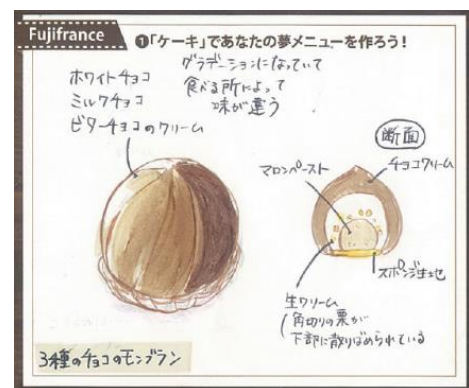 Fujifrance
❶「ケーキ」であなたの夢メニューを作ろう！
ホワイトチョコ
ミルクチョコ
ビターチョコのクリーム
グラデーションになっていて
食べる所によって
味が違う
断面
マロンペースト
チョコクリーム
スポンジ生地
生クリーム
角切りの栗が
下部に散りばめられている
3種のチョコのモンブラン